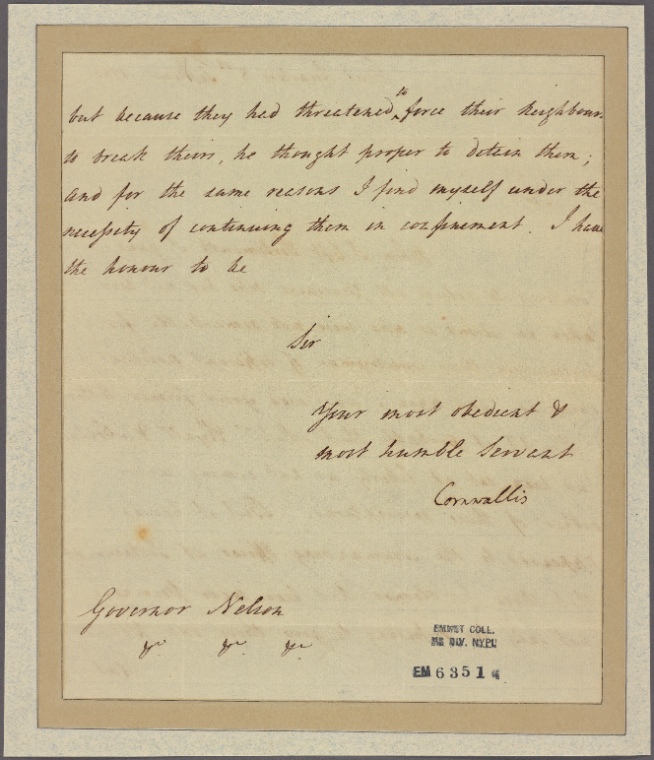 but because they had threatened to force their Neighbours
to break theirs, he thought proper to detain them;
and for the same reasons I find myself under the
necessity of continuing them in confinement. I have
the honour to be
Sir
Your most obedient &
most humble Servant
Cornwallis
Governor Nelson
&c &c &c
EMMET COLL.
MS DIV. NYPL
EM 6351